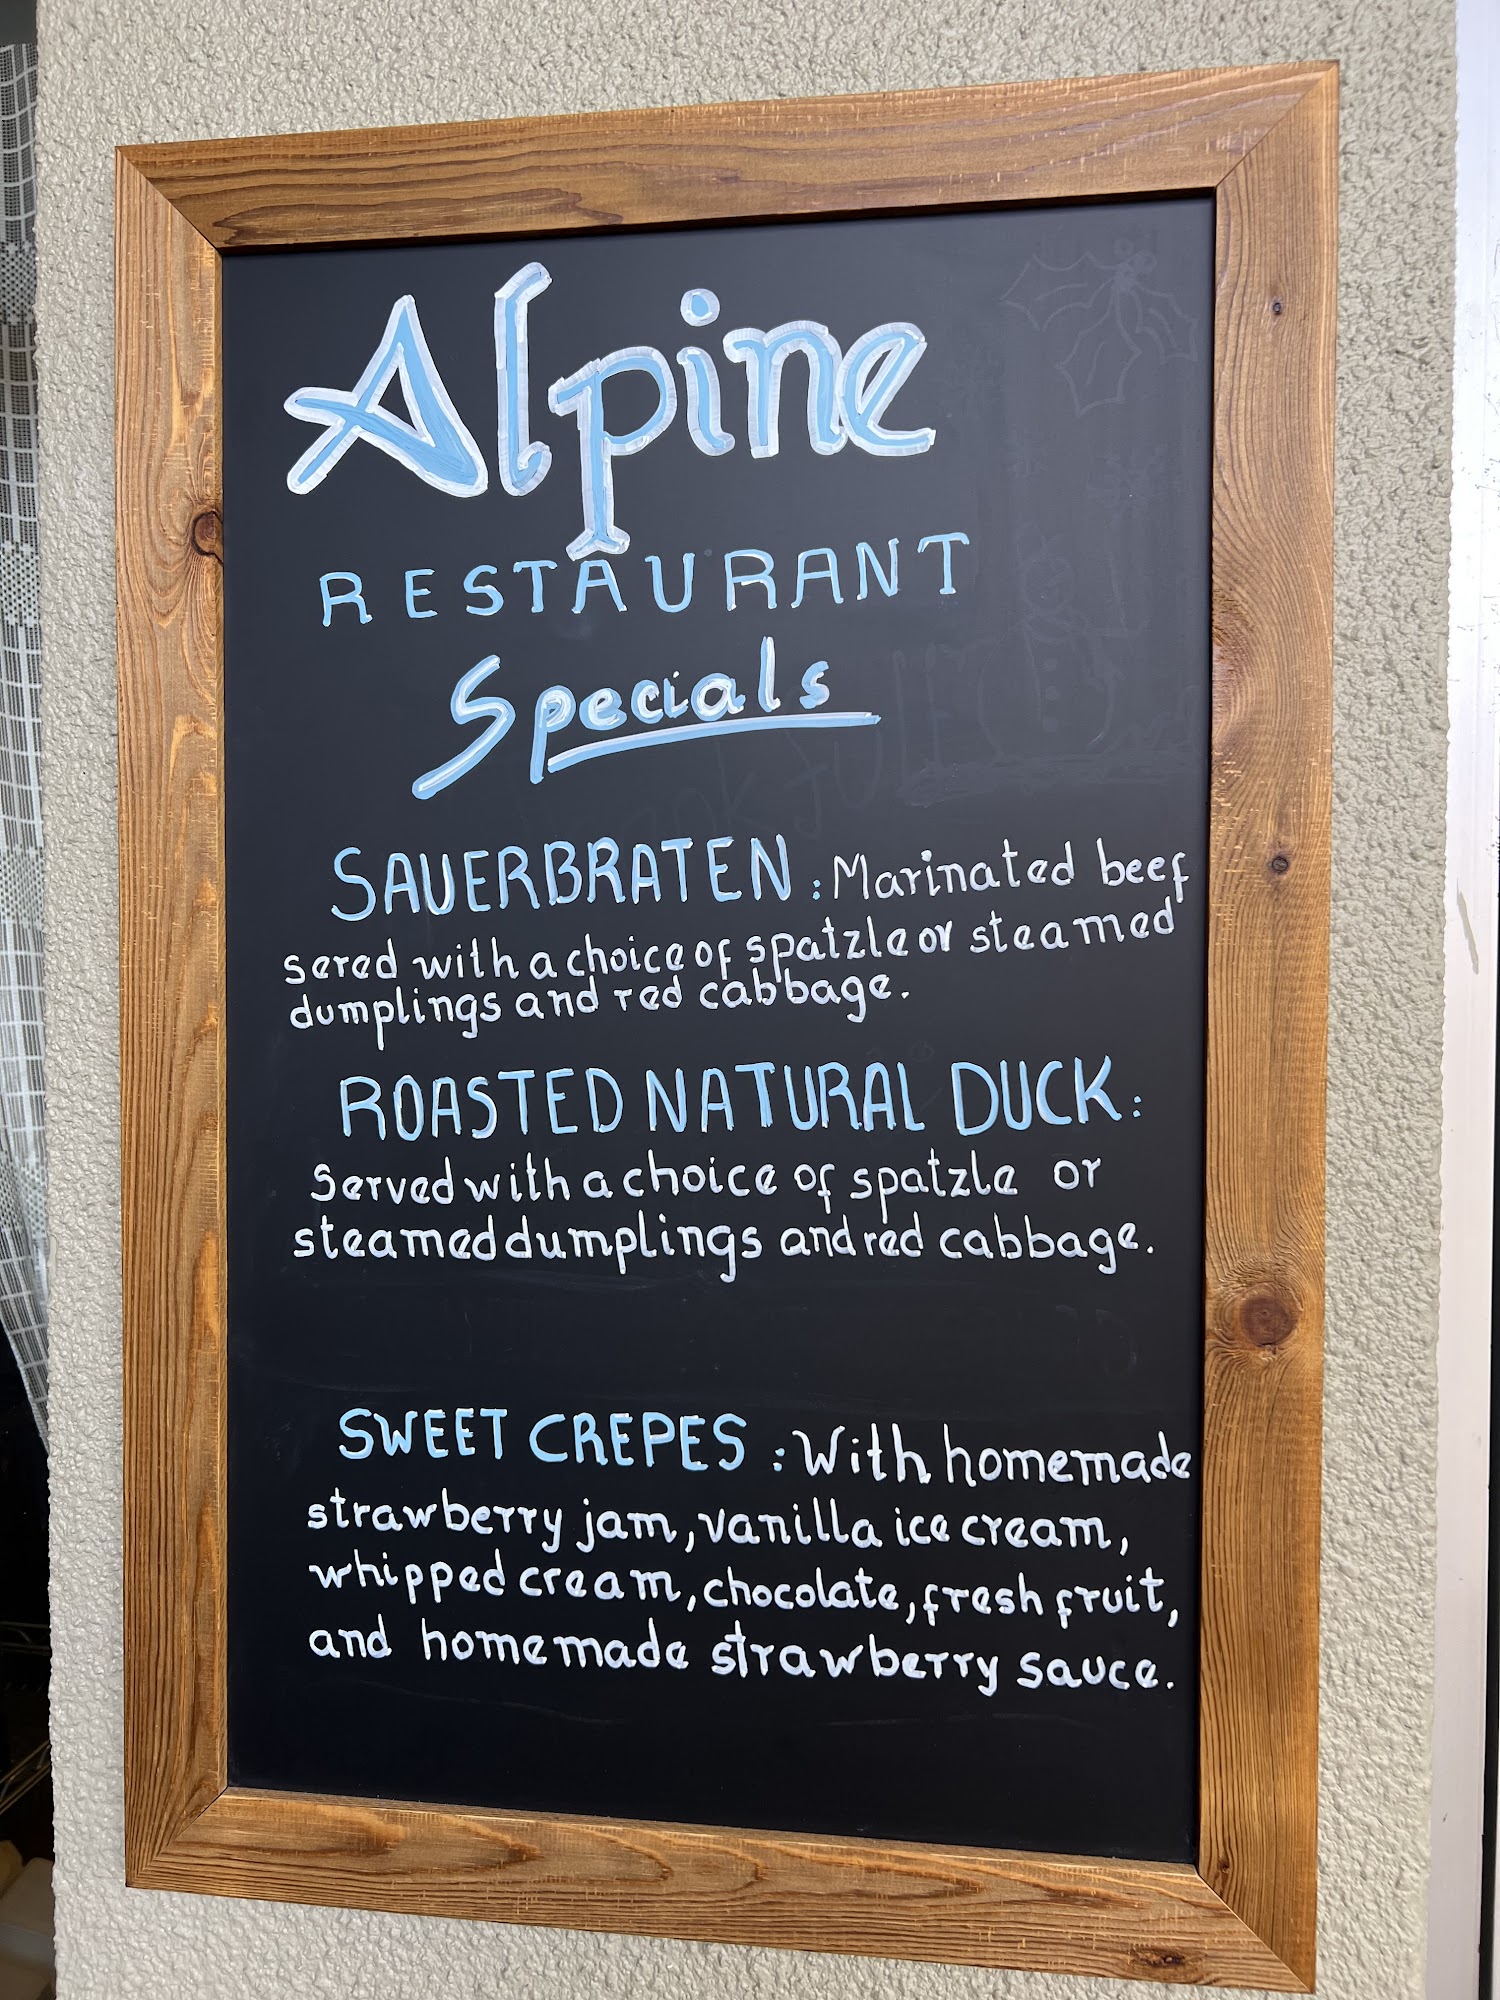 Alpine
RESTAURANT
Specials
SAUERBRATEN : Marinated beef
sered with a choice of spatzle or steamed
dumplings and red cabbage.
ROASTED NATURAL DUCK :
Served with a choice of spatzle or
steamed dumplings and red cabbage.
SWEET CREPES : With homemade
strawberry jam, vanilla ice cream,
whipped cream, chocolate, fresh fruit,
and homemade strawberry sauce.